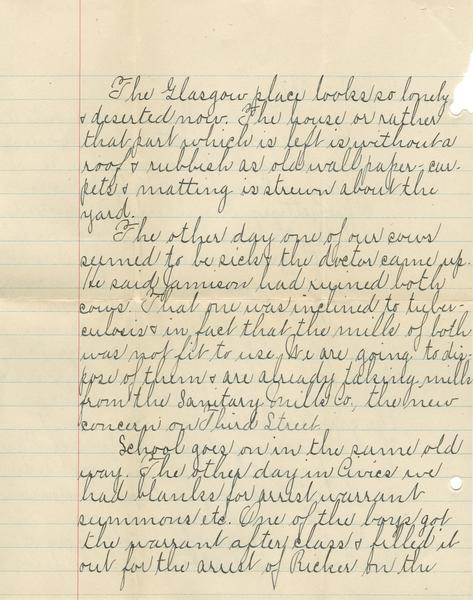 The Glasgow place looks so lonely
& deserted now. The house or rather
that part which is left is without a
roof & rubbish as old wall paper, car-
pets & matting is strewn about the
yard.
The other day one of our cows
seemed to be sick & the doctor came up.
He said Jamison had ruined both
cows. That one was inclined to tuber-
culosis & in fact that the milk of both
was not fit to use. We are going to dis-
pose of them & are already taking milk
from the Sanitary Milk Co., the new
concern on Third Street.
School goes on in the same old
way. The other day in Civics we
had blanks for arrest warrant
summons etc. One of the boys got
the warrant after class & filled it
out for the arrest of Ricker on the